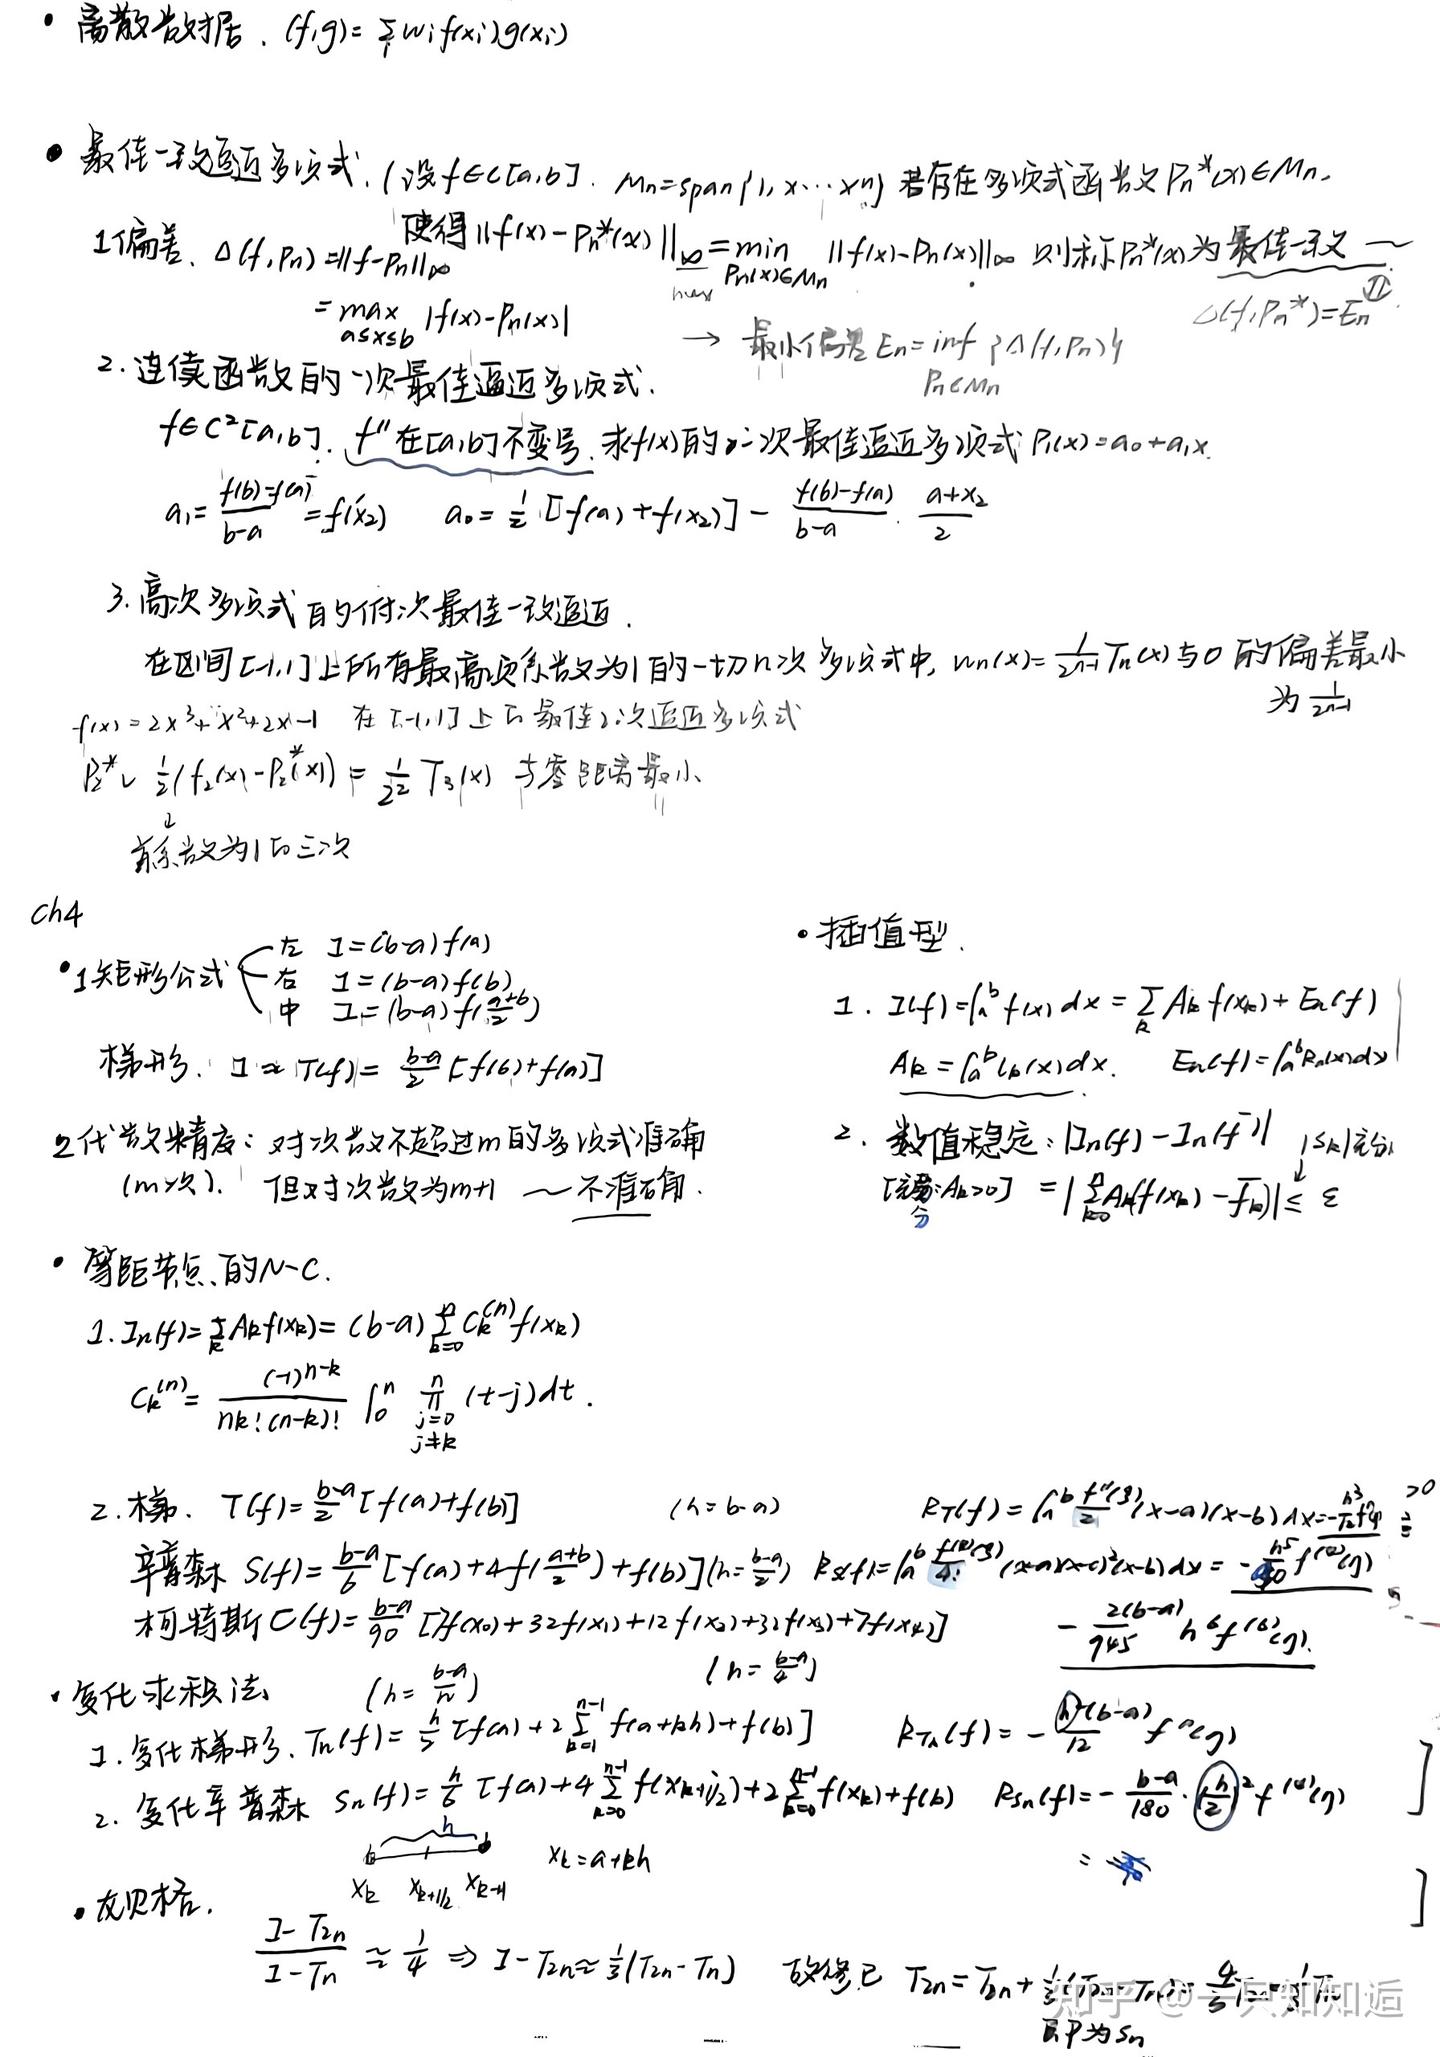 • 离散数据. (f,g)=∑wif(xi)g(xi)
• 最佳一致逼近多项式. (设f∈C[a,b]. Mn=span{1,x…xn} 若存在多项式函数Pn*(x)∈Mn.
使得||f(x)-Pn*(x)||∞=min Pn(x)∈Mn ||f(x)-Pn(x)||∞ 则称Pn*(x)为最佳一致~
1偏差. Δ(f,Pn)=||f-Pn||∞
=max a≤x≤b |f(x)-Pn(x)|
Δ(f,Pn*)=En
→ 最小偏差En=inf Pn∈Mn {Δ(f,Pn)}
2.连续函数的一次最佳逼近多项式.
f∈C²[a,b]. f''在[a,b]不变号. 求f(x)的一次最佳逼近多项式P1(x)=a0+a1x.
a1=f(b)-f(a)/b-a=f'(x2) a0=1/2[f(a)+f(x2)]-f(b)-f(a)/b-a·a+x2/2
3.高次多项式的低次最佳一致逼近.
在区间[-1,1]上所有最高次项系数为1的一切n次多项式中, wn(x)=1/2ⁿ⁻¹Tn(x)与0的偏差最小
为1/2ⁿ⁻¹
f(x)=2x³+x²+2x-1 在[-1,1]上的最佳2次逼近多项式
P2* 1/2(f2(x)-P2*(x))=1/2²T3(x) 与零距离最小
↓
首系数为1的三次
Ch4
•1矩形公式
左 I=(b-a)f(a)
右 I=(b-a)f(b)
中 I=(b-a)f(a+b/2)
梯形. I≈T(f)=b-a/2[f(b)+f(a)]
2代数精度:对次数不超过m的多项式准确
(m次). 但对次数为m+1~不准确.
•插值型.
1. I(f)=∫ₐᵇf(x)dx=∑k Akf(xk)+En(f)
Ak=∫ₐᵇlk(x)dx. En(f)=∫ₐᵇRn(x)dx
2. 数值稳定:|In(f)-In(f̄)| |≤k|充分
[充分:Ak>0] =|∑k=0ⁿAk(f(xk)-f̄k)|≤ε
• 等距节点的N-C.
1.In(f)=∑k Akf(xk)=(b-a)∑k=0ⁿCk⁽ⁿ⁾f(xk)
Ck⁽ⁿ⁾=(-1)ⁿ⁻ᵏ/nk!(n-k)! ∫₀ⁿ ∏ⁿ j=0 j≠k (t-j)dt.
2.梯. T(f)=b-a/2[f(a)+f(b)] (h=b-a) RT(f)=∫ₐᵇf''(ξ)/2(x-a)(x-b)dx=-h³/12f''(η) >0
辛普森 S(f)=b-a/6[f(a)+4f(a+b/2)+f(b)](h=b-a/2) RS(f)=∫ₐᵇf⁽⁴⁾(ξ)/4!(x-a)(x-c)²(x-b)dx=-h⁵/90f⁽⁴⁾(η)
柯特斯 C(f)=b-a/90[7f(x0)+32f(x1)+12f(x2)+32f(x3)+7f(x4)] -2(b-a)/945h⁶f⁽⁶⁾(η).
(h=b-a/4)
•复化求积法 (h=b-a/n)
1.复化梯形. Tn(f)=h/2[f(a)+2∑k=1ⁿ⁻¹f(a+kh)+f(b)] RTn(f)=-h²(b-a)/12f''(η)
2.复化辛普森 Sn(f)=h/6[f(a)+4∑k=0ⁿ⁻¹f(xk+1/2)+2∑k=0ⁿ⁻¹f(xk)+f(b) RSn(f)=-b-a/180·(h/2)²f⁽⁴⁾(η)
h
xk xk+1/2 xk+1 xk=a+kh
•龙贝格.
I-T2n/I-Tn≈1/4⇒I-T2n≈1/3(T2n-Tn) 故修正 T2n=T2n+1/3(T2n-Tn)=4/3T2n-1/3Tn
即为Sn
知乎 @一只知知逅